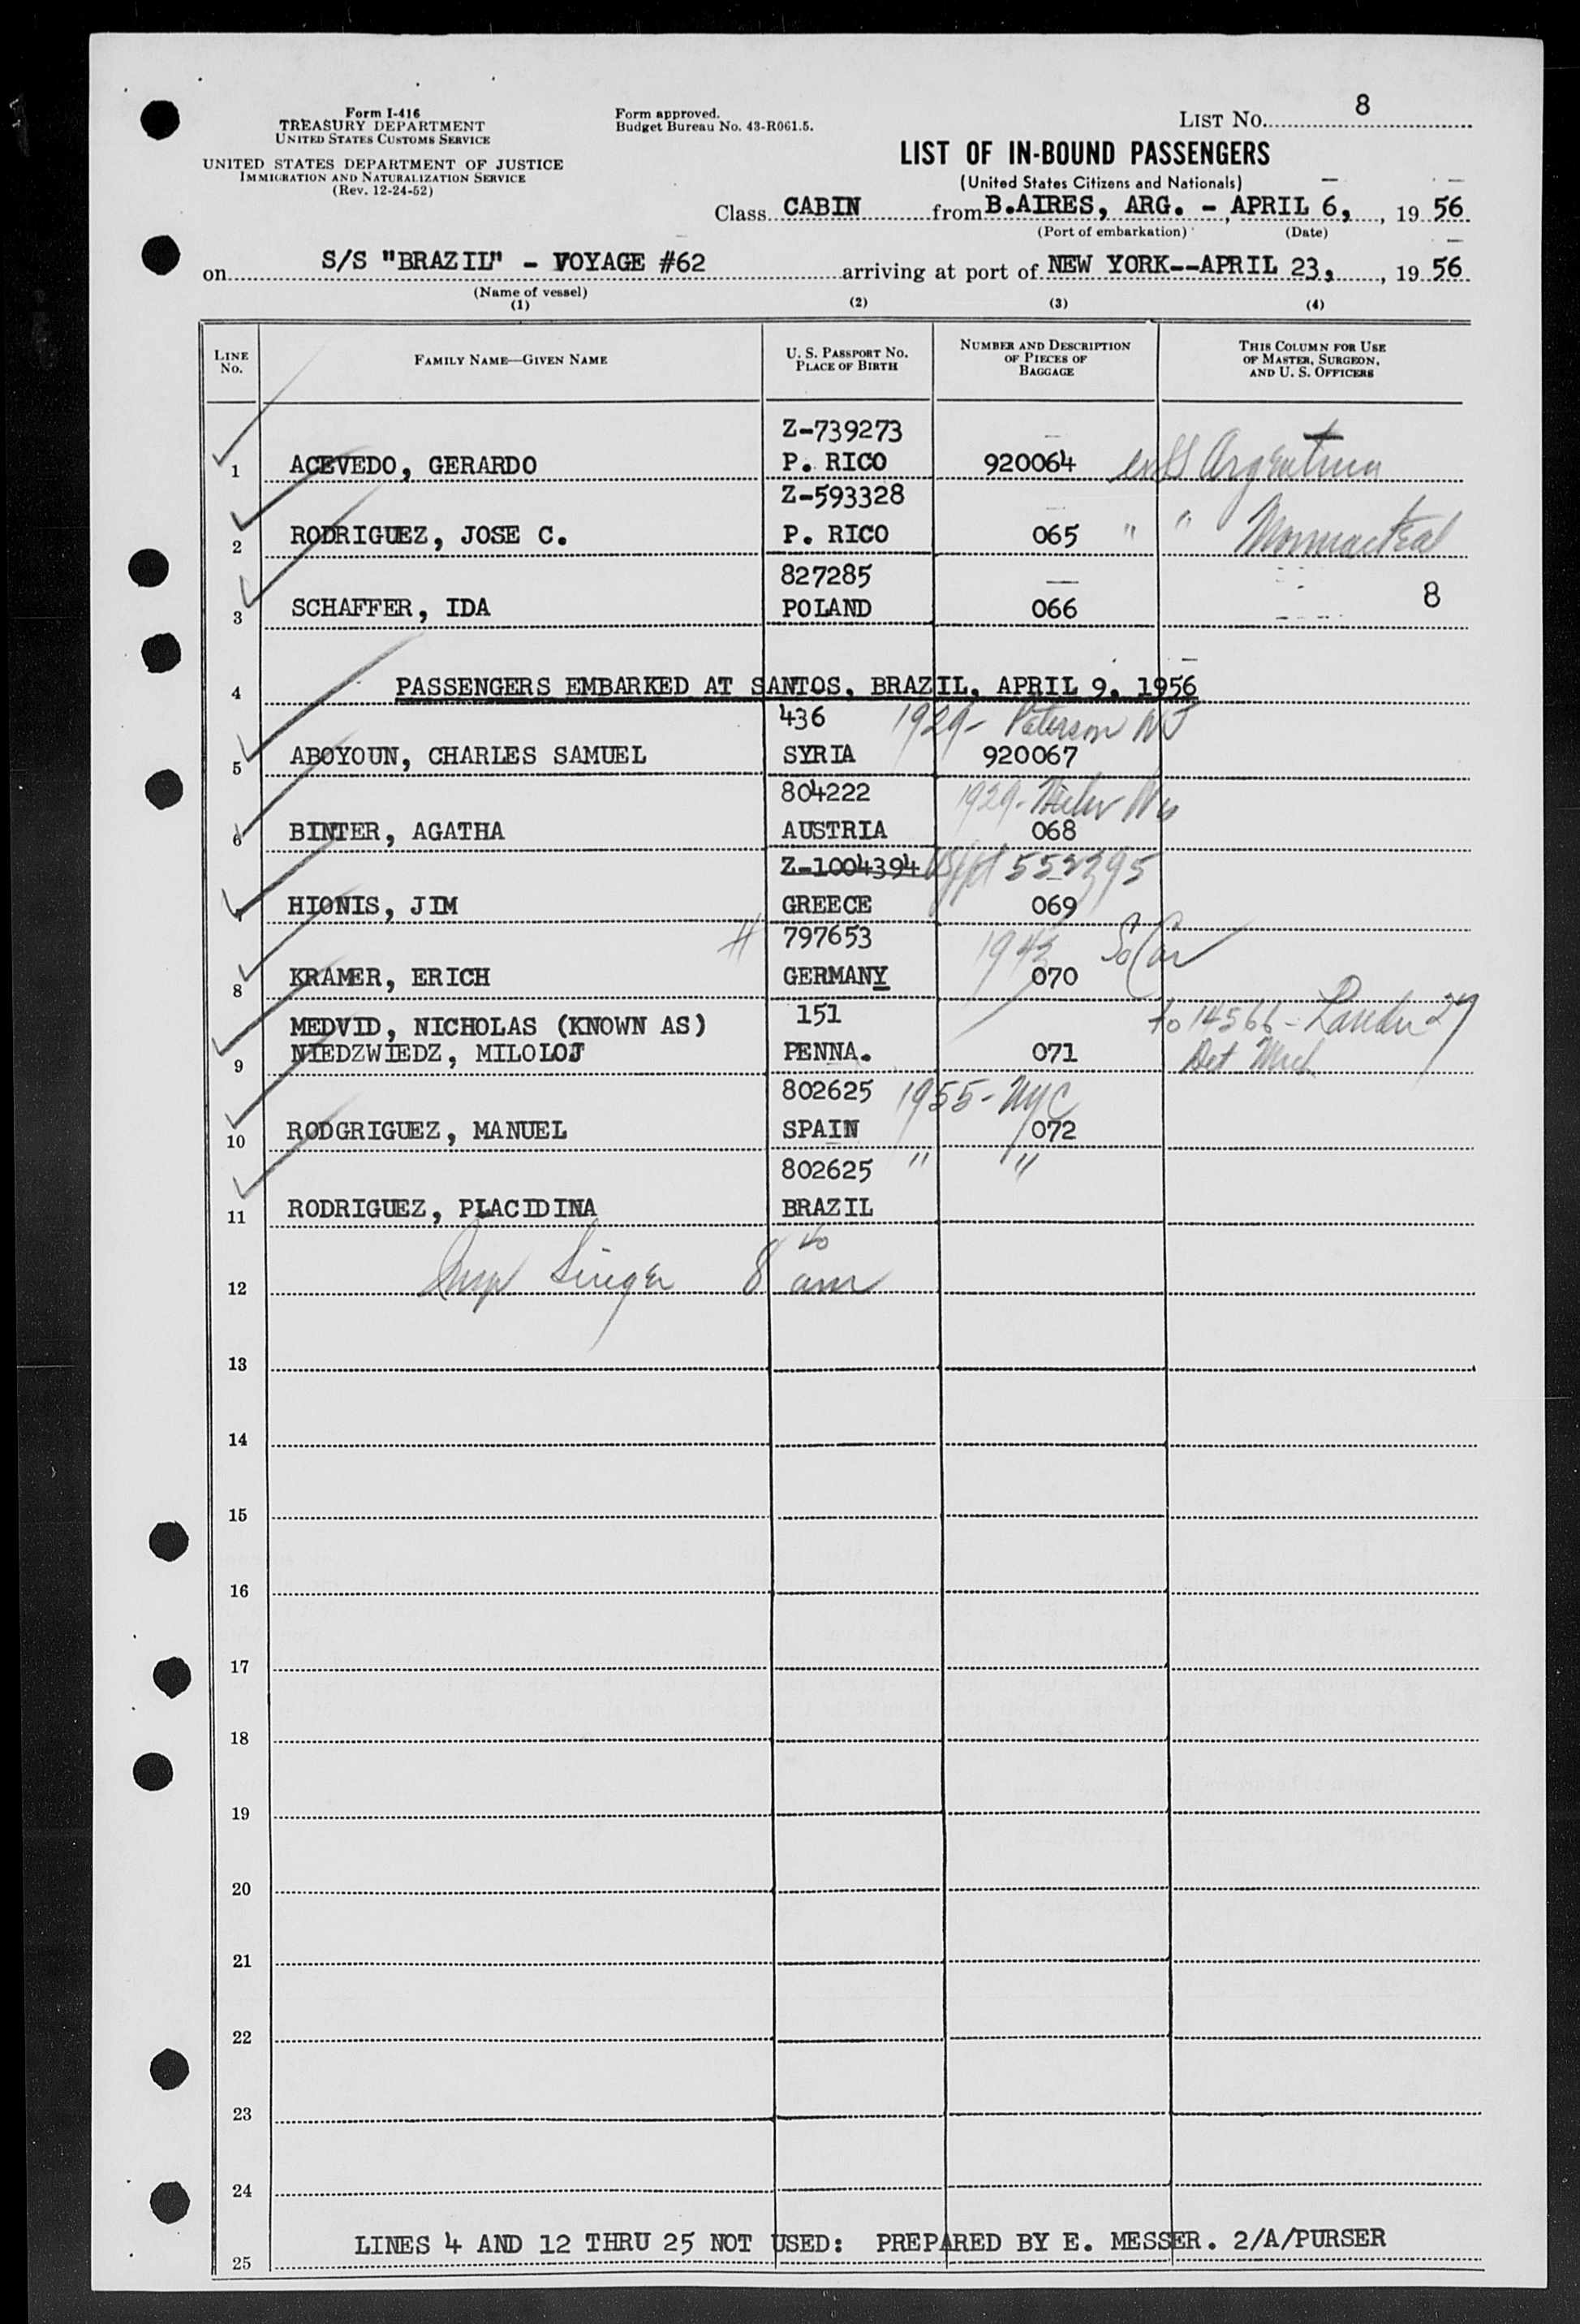 Form I-416
TREASURY DEPARTMENT
UNITED STATES CUSTOMS SERVICE
UNITED STATES DEPARTMENT OF JUSTICE
IMMIGRATION AND NATURALIZATION SERVICE
(Rev. 12-24-52)
Form approved.
Budget Bureau No. 43-R061.5.
LIST No. 8
LIST OF IN-BOUND PASSENGERS
(United States Citizens and Nationals)
Class CABIN from B.AIRES, ARG. - APRIL 6, , 19 56
(Port of embarkation) (Date)
on S/S "BRAZIL" - VOYAGE #62 arriving at port of NEW YORK--APRIL 23, , 19 56
(Name of vessel)
(1) (2) (3) (4)
LINE No. FAMILY NAME—GIVEN NAME U. S. PASSPORT No. PLACE OF BIRTH NUMBER AND DESCRIPTION OF PIECES OF BAGGAGE THIS COLUMN FOR USE OF MASTER, SURGEON, AND U. S. OFFICERS
Z-739273
1 ACEVEDO, GERARDO P. RICO 920064 ex SS Argentina
Z-593328
2 RODRIGUEZ, JOSE C. P. RICO 065 " "
827285
3 SCHAFFER, IDA POLAND 066 8
4 PASSENGERS EMBARKED AT SANTOS, BRAZIL, APRIL 9, 1956
436 1929- Paterson NJ
5 ABOYOUN, CHARLES SAMUEL SYRIA 920067
804222 1929-
6 BINTER, AGATHA AUSTRIA 068
Z-1004394 553395
7 HIONIS, JIM GREECE 069
# 797653 1943 So Car
8 KRAMER, ERICH GERMANY 070
MEDVID, NICHOLAS (KNOWN AS) 151 to 14566
9 NIEDZWIEDZ, MILOLOJ PENNA. 071 Det Mich
802625 1955- NYC
10 RODGRIGUEZ, MANUEL SPAIN 072
802625 " "
11 RODRIGUEZ, PLACIDINA BRAZIL
12 Insp Singer 8 40 am
13
14
15
16
17
18
19
20
21
22
23
24
LINES 4 AND 12 THRU 25 NOT USED: PREPARED BY E. MESSER. 2/A/PURSER
25